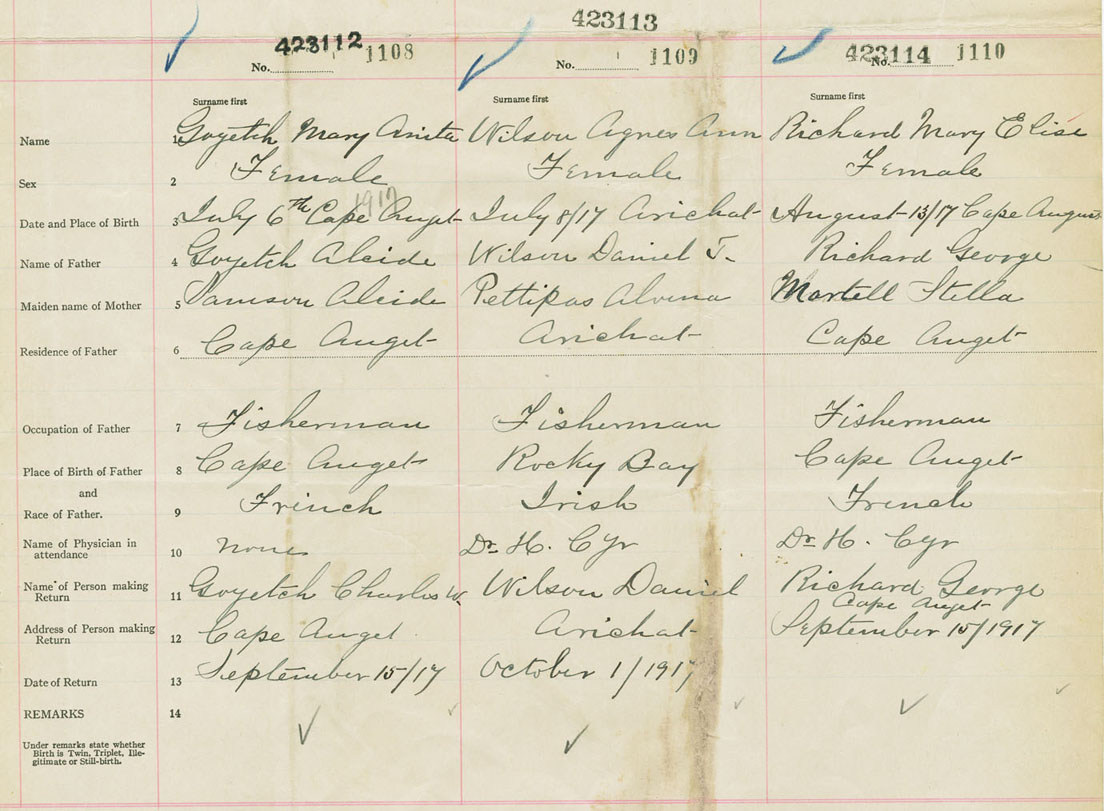 423112 1108 423113 1109 423114 1110
No. No. No.
Surname first Surname first Surname first
Name 1 Goyetch Mary Anita Wilson Agnes Ann Richard Mary Elise
Sex 2 Female Female Female
1917
Date and Place of Birth 3 July 6th Cape Auget July 8/17 Arichat August 13/17 Cape Auguet
Name of Father 4 Goyetch Alcide Wilson Daniel J. Richard George
Maiden name of Mother 5 Samson Alcide Pettipas Alvena Martell Stella
Residence of Father 6 Cape Auget Arichat Cape Auget
Occupation of Father 7 Fisherman Fisherman Fisherman
Place of Birth of Father 8 Cape Auget Rocky Bay Cape Auget
and
Race of Father. 9 French Irish French
Name of Physician in
attendance 10 none Dr H. Cyr Dr H. Cyr
Name of Person making
Return 11 Goyetch Charles W. Wilson Daniel Richard George
Cape Auget
Address of Person making
Return 12 Cape Auget Arichat September 15/1917
Date of Return 13 September 15/17 October 1/1917
REMARKS 14
Under remarks state whether
Birth is Twin, Triplet, Ille-
gitimate or Still-birth.